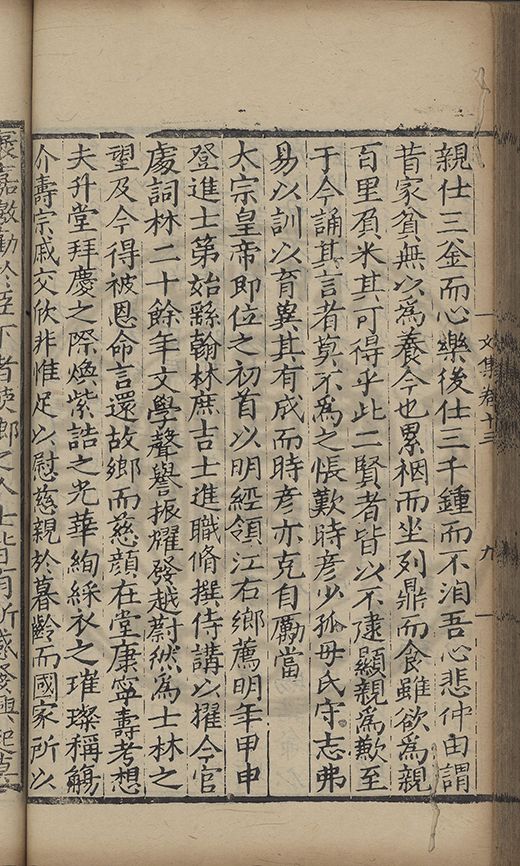 文集卷十三
九
親仕三釡而心樂後仕三千鍾而不洎吾心悲仲由謂
昔家貧無以為養今也累裀而坐列鼎而食雖欲為親
百里負米其可得乎此二賢者皆以不逮顯親為歉至
于今誦其言者莫不為之悵歎時彦少孤母氏守志弗
易以訓以育兾其有成而時彦亦克自勵當
太宗皇帝即位之初首以明經領江右鄉薦明年甲申
登進士第始繇翰林庶吉士進職脩撰侍講以擢今官
處詞林二十餘年文學聲譽振耀發越蔚然為士林之
望及今得被恩命言還故鄉而慈顔在堂康寧壽考想
夫升堂拜慶之際煥紫誥之光華絢綵衣之璀璨稱觴
介壽宗戚交欣非惟足以慰慈親於暮齡而國家所以